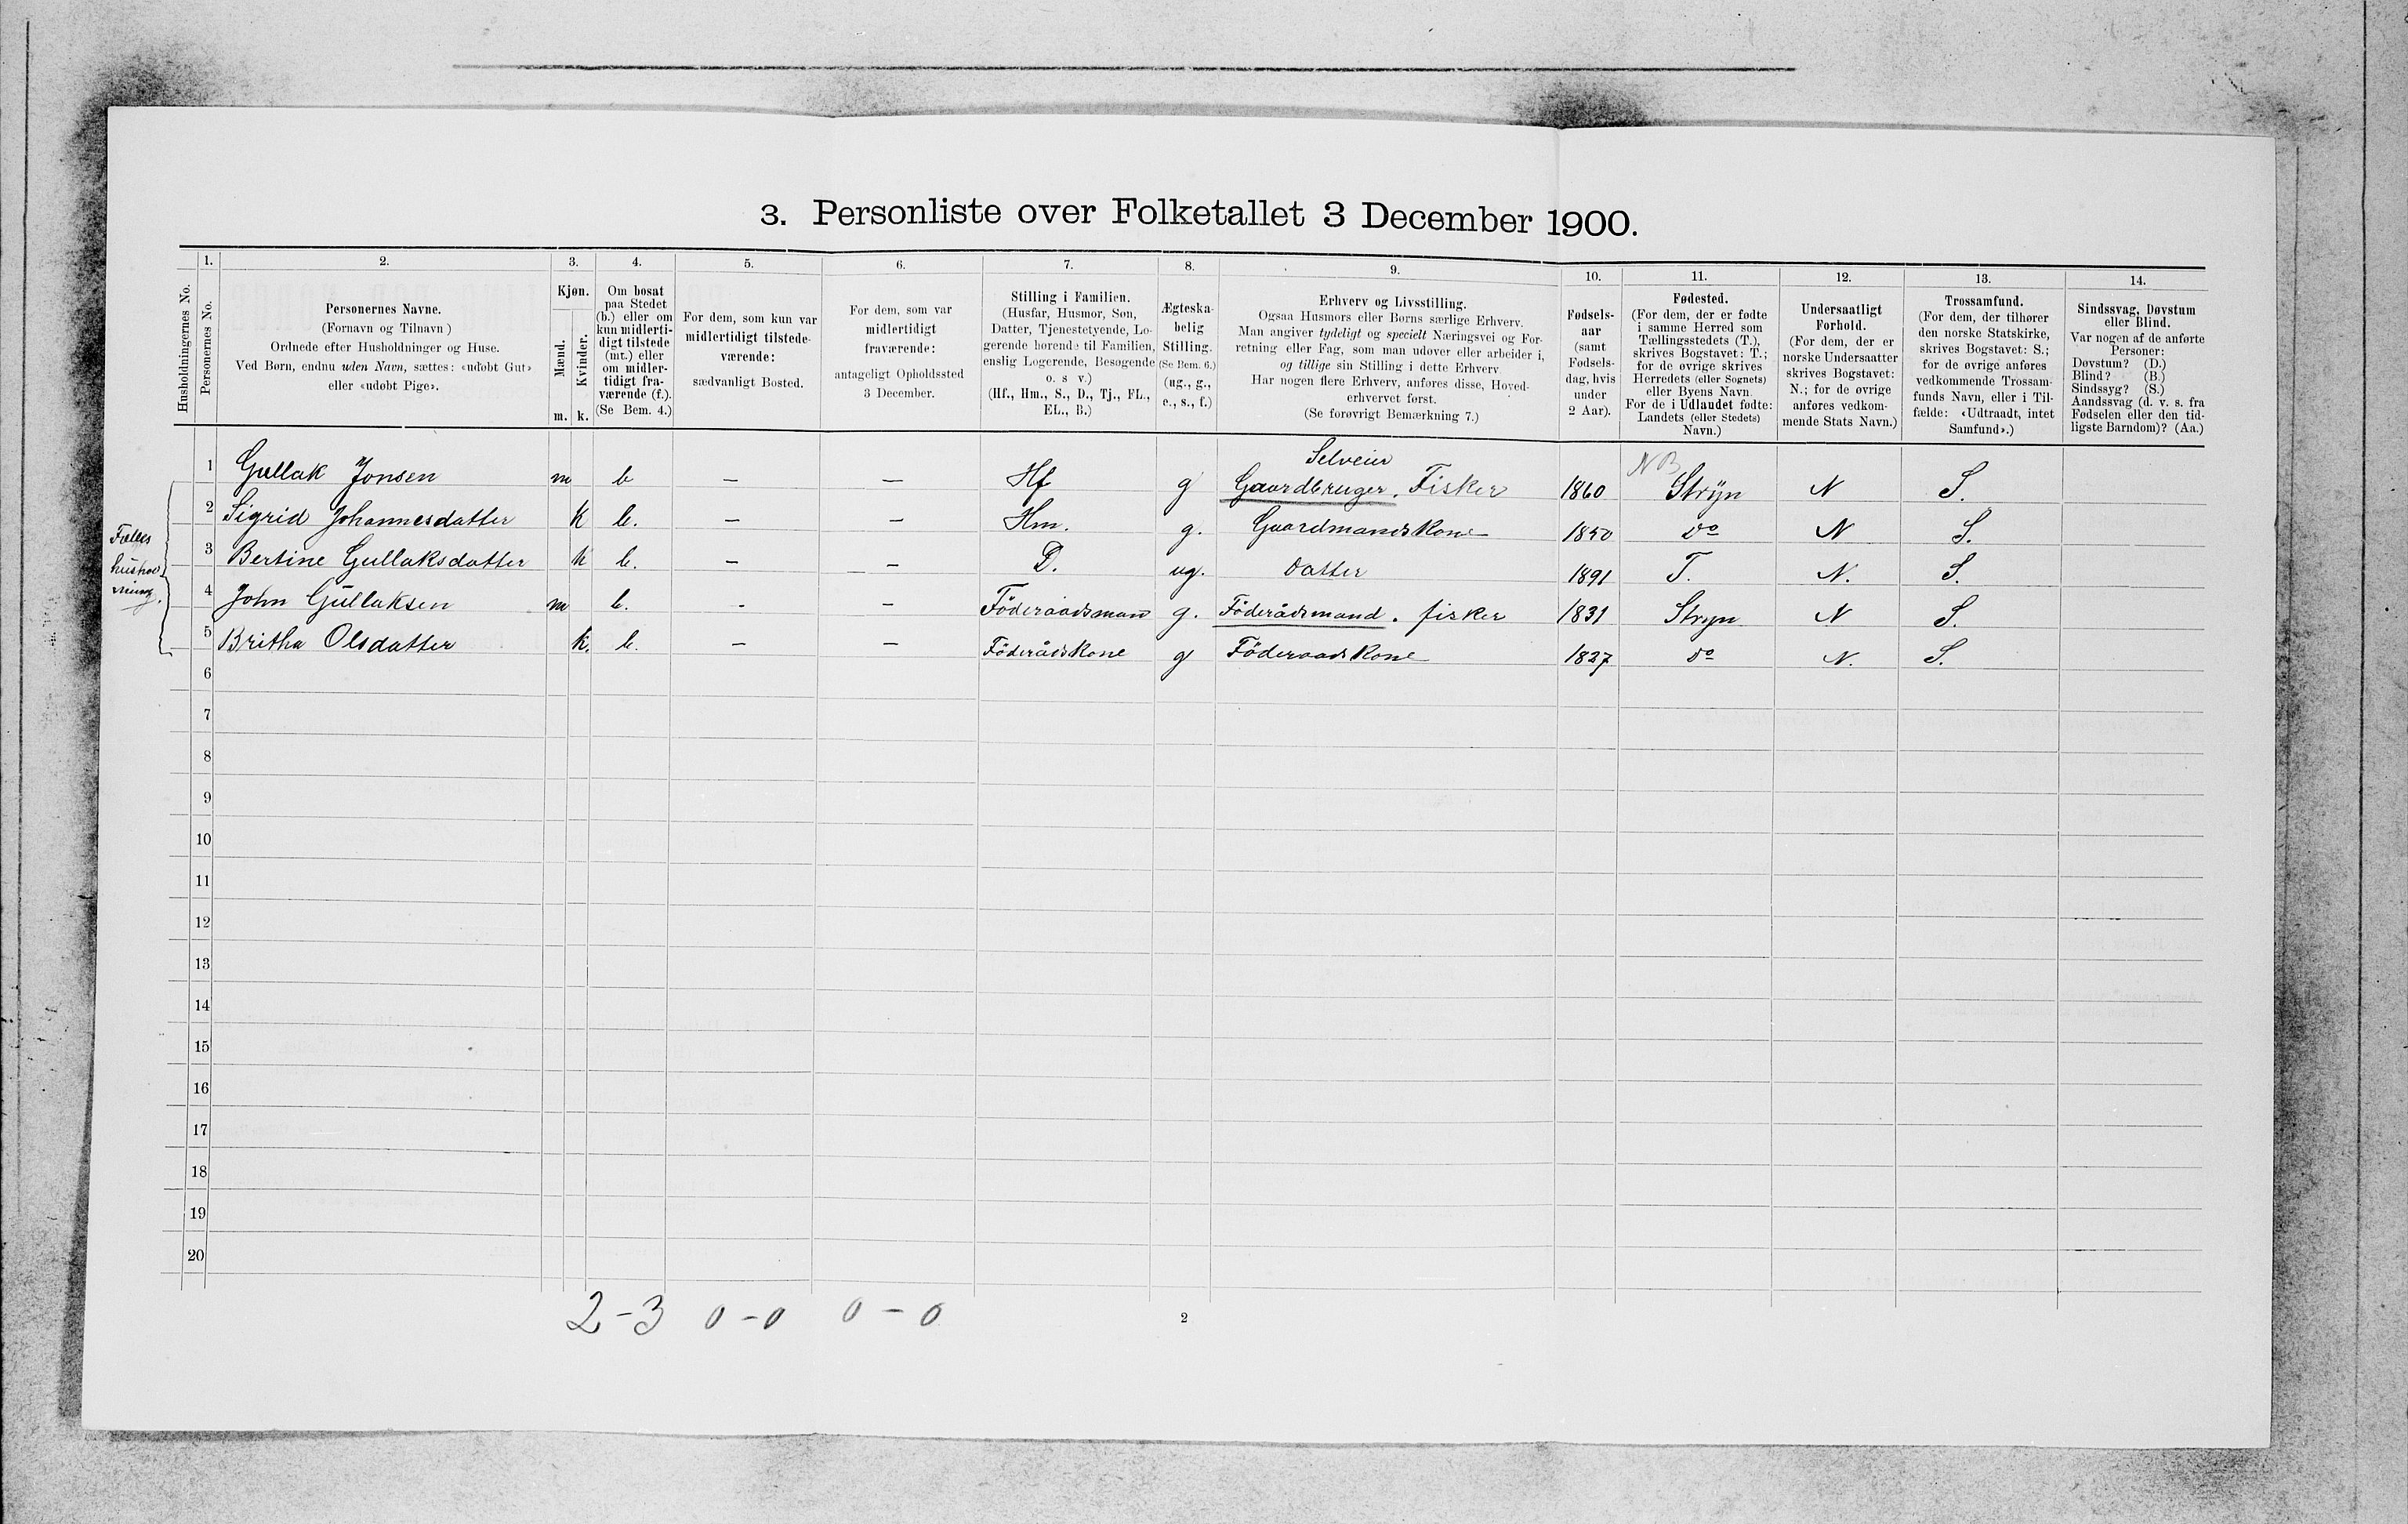 3. Personliste over Folketallet 3 December 1900.
Husholdningernes No.
1.
Personernes No.
2.
Personernes Navne.
(Fornavn og Tilnavn)
Ordnede efter Husholdninger og Huse.
Ved Børn, endnu uden Navn, sættes: «udøbt Gut»
eller «udøbt Pige».
3.
Kjøn.
Mænd.
Kvinder.
m. k.
4.
Om bosat
paa Stedet
(b.) eller om
kun midlerti-
digt tilstede
(mt.) eller
om midler-
tidigt fra-
værende (f.).
(Se Bem. 4.)
5.
For dem, som kun var
midlertidigt tilstede-
værende:
sædvanligt Bosted.
6.
For dem, som var
midlertidigt
fraværende:
antageligt Opholdssted
3 December.
7.
Stilling i Familien.
(Husfar, Husmor, Søn,
Datter, Tjenestetyende, Lo-
gerende hørende til Familien,
enslig Logerende, Besøgende
o. s v.)
(Hf., Hm., S., D., Tj., FL.,
EL., B.)
8.
Ægteska-
belig
Stilling.
(Se Bem. 6.)
(ug., g.,
e., s., f.)
9.
Erhverv og Livsstilling.
Ogsaa Husmors eller Børns særlige Erhverv.
Man angiver tydeligt og specielt Næringsvei og For-
retning eller Fag, som man udøver eller arbeider i,
og tillige sin Stilling i dette Erhverv
Har nogen flere Erhverv, anføres disse, Hoved-
erhvervet først.
(Se forøvrigt Bemærkning 7.)
10.
Fødsels-
aar
(samt
Fødsels-
dag, hvis
under
2 Aar).
11.
Fødested.
(For dem, der er fødte
i samme Herred som
Tællingsstedets (T.),
skrives Bogstavet: T.;
for de øvrige skrives
Herredets (eller Sognets)
eller Byens Navn.
For de i Udlandet fødte:
Landets (eller Stedets)
Navn.)
12.
Undersaatligt
Forhold.
(For dem, der er
norske Undersaatter
skrives Bogstavet:
N.; for de øvrige
anføres vedkom-
mende Stats Navn.)
13.
Trossamfund.
(For dem, der tilhører
den norske Statskirke,
skrives Bogstavet: S.;
for de øvrige anføres
vedkommende Trossam-
funds Navn, eller i Til-
fælde: «Udtraadt, intet
Samfund».)
14.
Sindssvag, Døvstum
eller Blind.
Var nogen af de anførte
Personer:
Døvstum? (D.)
Blind? (B.)
Sindssyg? (S.)
Aandssvag (d. v. s. fra
Fødselen eller den tid-
ligste Barndom)? (Aa.)
Selveier
1 Gullak Jonsen m b – – Hf g Gaardbruger. Fisker 1860 NB Strÿn N S.
2 Sigrid Johannesdatter k b. – – Hm. g. Gaardmandskone 1850 do N S.
3 Bertine Gullaksdatter k b. – – D. ug. datter 1891 T. N. S.
4 John Gullaksen m b. - – Föderaadsmand g. Föderådsmand. fisker 1831 Stryn N S.
5 Britha Olsdatter k. b. – – Föderådskone g Föderaadskone 1827 do N. S.
6
7
8
9
10
11
12
13
14
15
16
17
18
19
20
2–3 0–0 0–0
2